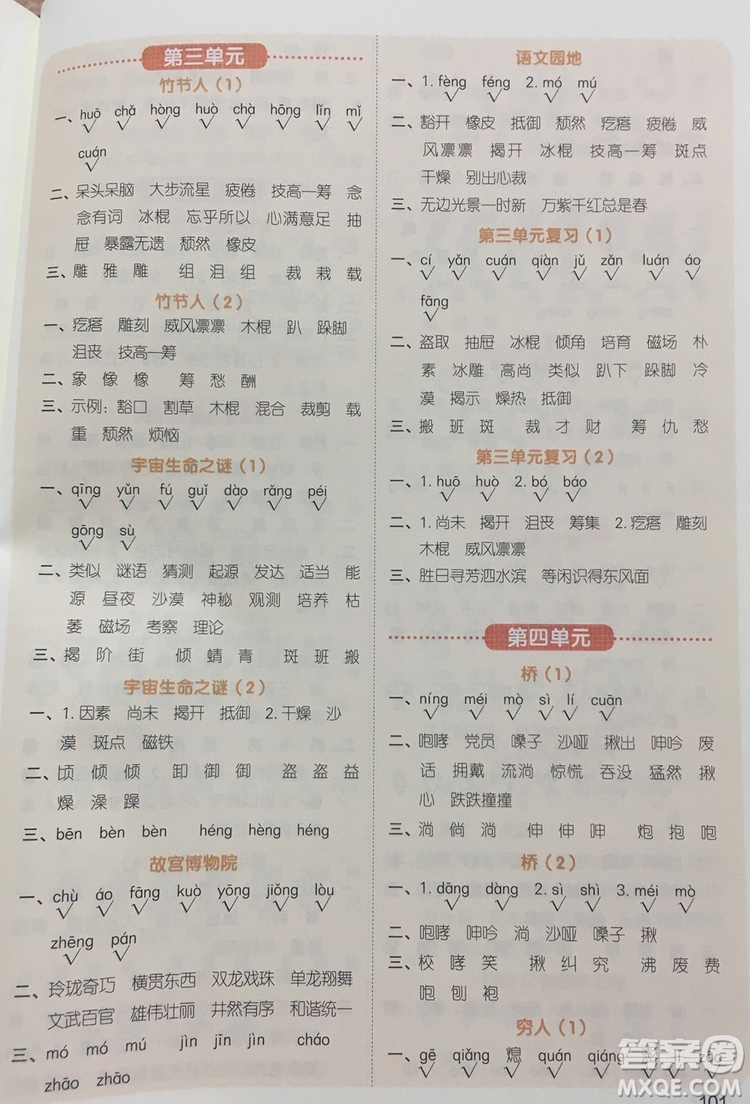 第三单元
竹节人（1）
一、huō chǎ hòng huò chà hōng lǐn mǐ
cuán
二、呆头呆脑 大步流星 疲倦 技高一筹 念
念有词 冰棍 忘乎所以 心满意足 抽
屉 暴露无遗 颓然 橡皮
三、雕 雅 雕 组 沮 组 裁 栽 载
竹节人（2）
一、疙瘩 雕刻 威风凛凛 木棍 趴 跺脚
沮丧 技高一筹
二、象 像 橡 筹 愁 酬
三、示例：豁口 割草 木棍 混合 裁剪 载
重 颓然 烦恼
宇宙生命之谜（1）
一、qīng yǔn fú guǐ dào rǎng péi
gōng sù
二、类似 谜语 猜测 起源 发达 适当 能
源 昼夜 沙漠 神秘 观测 培养 枯
萎 磁场 考察 理论
三、揭 阶 街 倾 蜻 青 斑 班 搬
宇宙生命之谜（2）
一、1.因素 尚未 揭开 抵御 2.干燥 沙
漠 斑点 磁铁
二、顷 倾 倾 卸 御 御 盗 盗 益
燥 澡 躁
三、bēn bèn bèn héng hèng héng
故宫博物院
一、chù áo fāng kuò yōng jiǒng lòu
zhēng pán
二、玲珑奇巧 横贯东西 双龙戏珠 单龙翔舞
文武百官 雄伟壮丽 井然有序 和谐统一
三、mó mó mú jìn jīn jìn cháo
zhāo zhāo
语文园地
一、1. fèng féng 2. mó mú
二、豁开 橡皮 抵御 颓然 疙瘩 疲倦 威
风凛凛 揭开 冰棍 技高一筹 斑点
干燥 别出心裁
三、无边光景一时新 万紫千红总是春
第三单元复习（1）
一、cí yǎn cuán qiàn jǔ zǎn luán áo
fāng
二、盗取 抽屉 冰棍 倾角 培育 磁场 朴
素 冰雕 高尚 类似 趴下 跺脚 冷
漠 揭示 燥热 抵御
三、搬 班 斑 裁 才 财 筹 仇 愁
第三单元复习（2）
一、1. huō huò 2. bó báo
二、1.尚未 揭开 沮丧 筹集 2.疙瘩 雕刻
木棍 威风凛凛
三、胜日寻芳泗水滨 等闲识得东风面
第四单元
桥（1）
一、níng méi mò sì lí cuān
二、咆哮 党员 嗓子 沙哑 揪出 呻吟 废
话 拥戴 流淌 惊慌 吞没 猛然 揪
心 跌跌撞撞
三、淌 倘 淌 伸 伸 呻 炮 抱 咆
桥（2）
一、1. dāng dàng 2. sì shì 3. méi mò
二、咆哮 呻吟 淌 沙哑 嗓子 揪
三、校 哮 笑 揪 纠 究 沸 废 费
咆 刨 袍
穷人（1）
一、gē qiǎng 熄 quán qiáng
101
答案圈
MXQE.COM